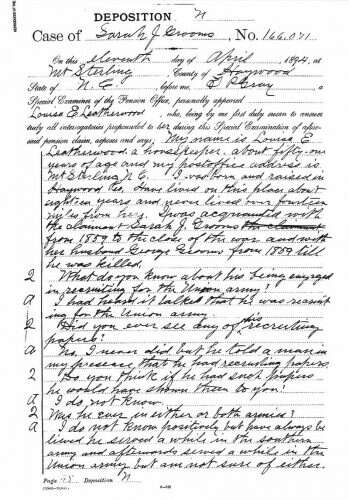 DEPOSITION N
Case of Sarah J. Grooms, No. 166.071
On this eleventh day of April, 1894, at
Mt Sterling, County of Haywood
State of N. C., before me, E P Gray, a
Special Examiner of the Pension Office, personally appeared
Louisa E Leatherwood, who, being by me first duly sworn to answer
truly all interrogatories propounded to her during this Special Examination of afore-
said pension claim, deposes and says: My name is Louisa E.
Leatherwood a housekeeper, about fifty-one
years of age and my postoffice address is
Mt Sterling N. C. I was born and raised in
Haywood Co. Have lived on this place about
eighteen years and never lived over fourteen
miles from here. I was acquainted with
the claimant Sarah J. Grooms the claimant
from 1859 to the close of the war and with
her husband George Grooms from 1859 till
he was killed.
Q What do you know about his being engaged
in recruiting for the Union army?
A I had heard it talked that he was recruit
ing for the Union army.
Q Did you ever see any of his recruiting
papers?
A No, I never did but he told a man in
my presence that he had recruiting papers.
Q Do you think if he had such papers
he would have shown them to you?
A I do not know.
Q Was he ever in either or both armies?
A I do not know positively but have always be
lieved he served a while in the southern
army and afterwards served a while in the
Union army but am not sure of either.
Page 45 Deposition N